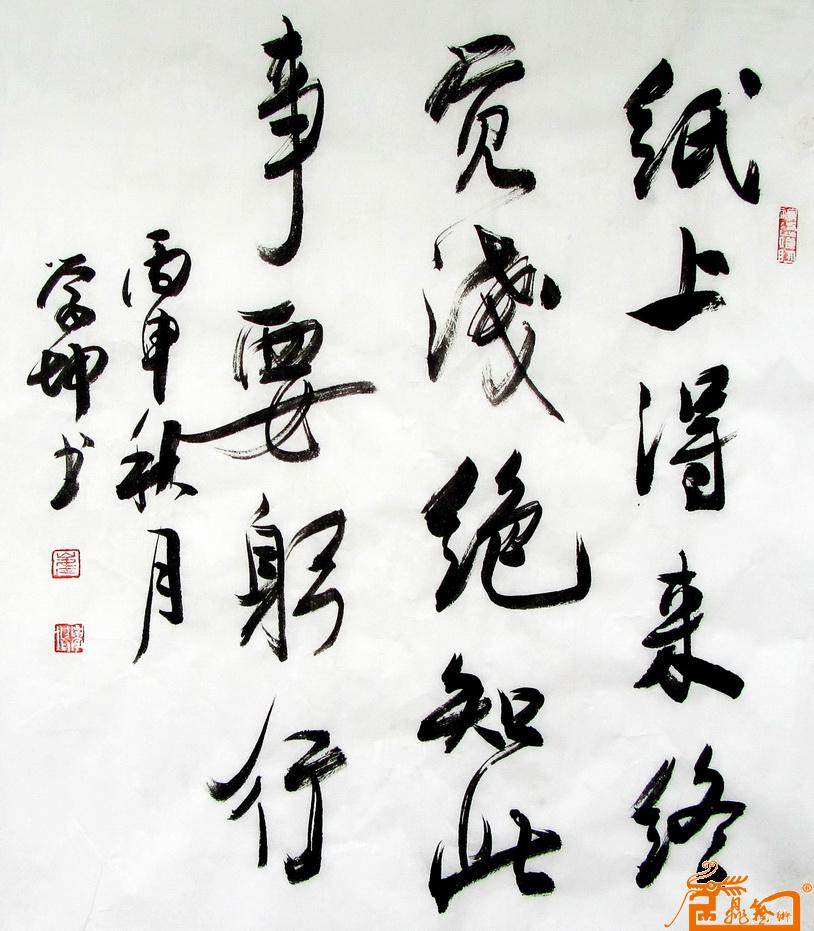 纸上得来终
觉浅绝知此
事要躬行
丙申秋月
学坤书